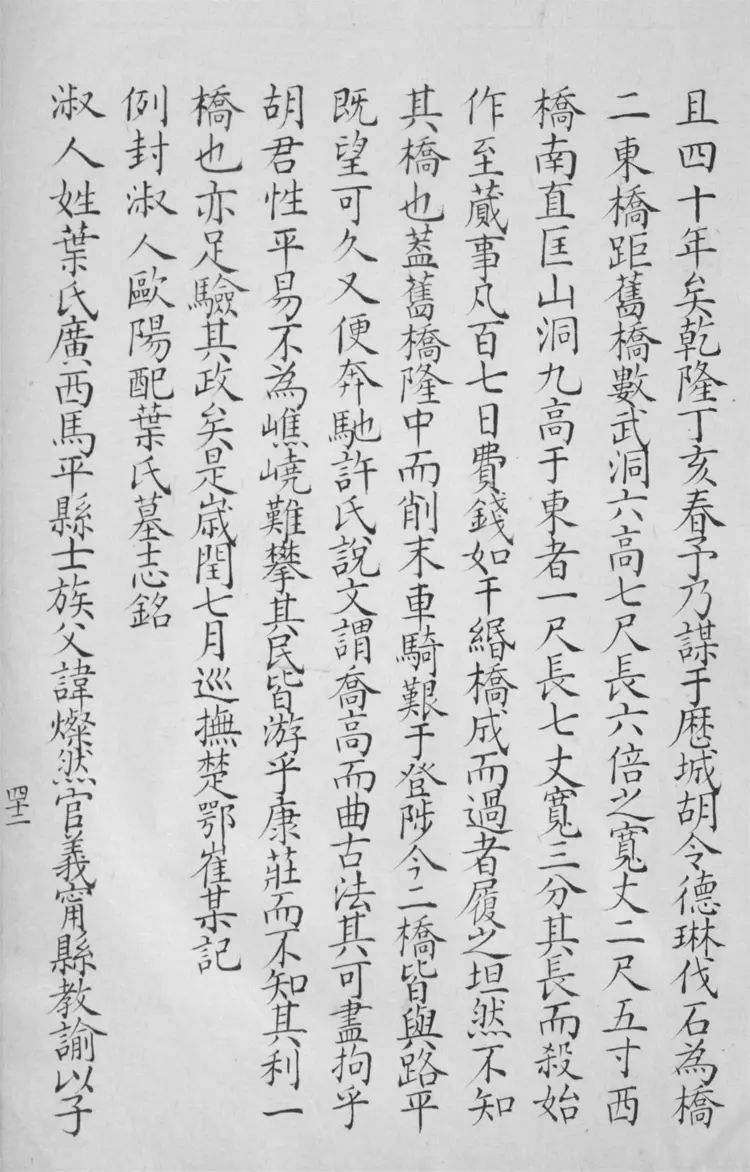 且四十年矣乾隆丁亥春予乃謀于歷城胡令德琳伐石為橋
二東橋距舊橋數武洞六高七尺長六倍之寬丈二尺五寸西
橋南直匡山洞九高于東者一尺長七丈寬三分其長而殺始
作至蕆事凡百七日費錢如干緡橋成而過者履之坦然不知
其橋也蓋舊橋隆中而削末車騎艱于登陟今二橋皆與路平
既望可久又便奔馳許氏說文謂喬高而曲古法其可盡拘乎
胡君性平易不為嶕嶢難攀其民皆游乎康莊而不知其利一
橋也亦足驗其政矣是歲閏七月巡撫楚鄂崔某記
例封淑人歐陽配葉氏墓志銘
淑人姓葉氏廣西馬平縣士族父諱燦然官義甯縣教諭以子
四十二